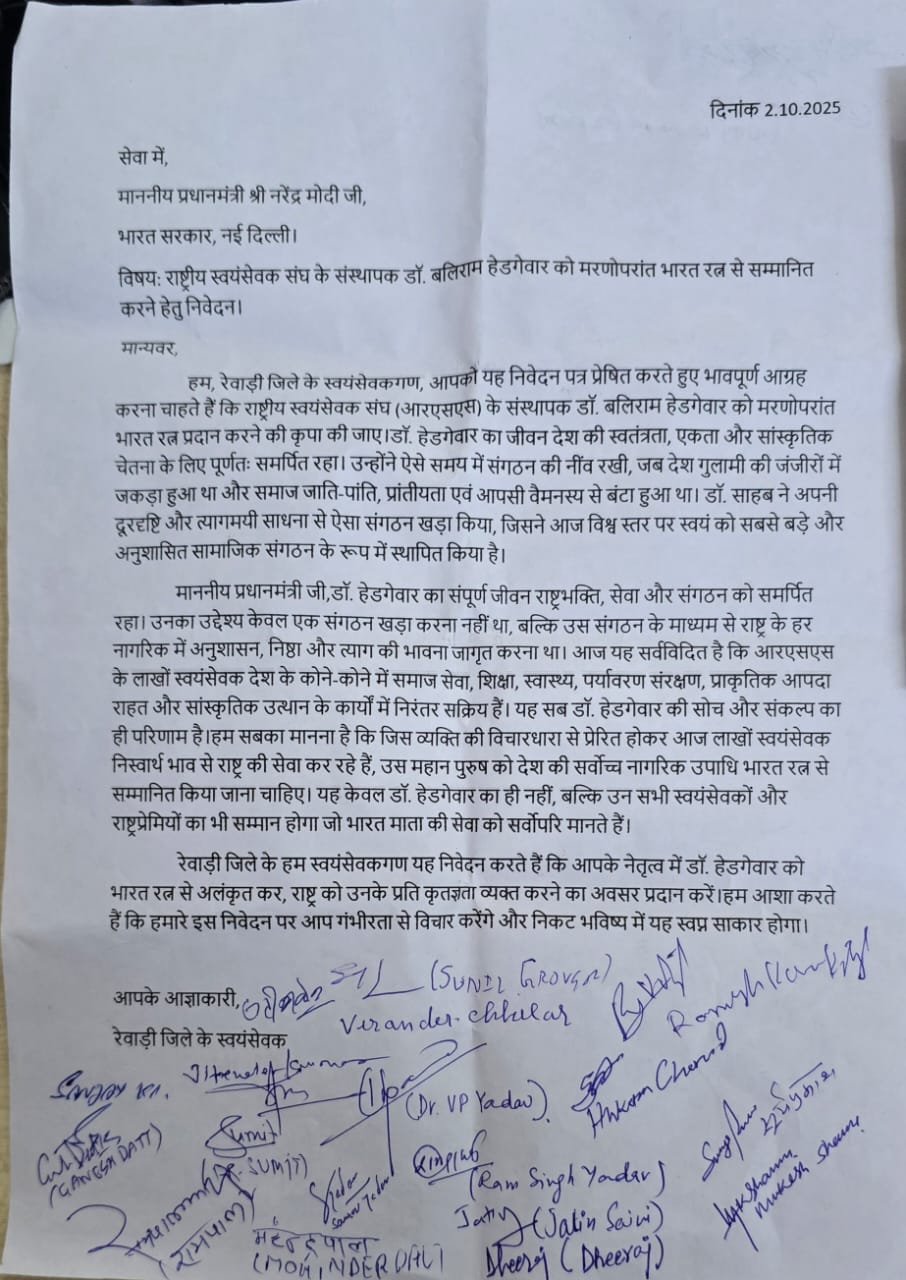 दिनांक 2.10.2025
सेवा में,
माननीय प्रधानमंत्री श्री नरेंद्र मोदी जी,
भारत सरकार, नई दिल्ली।
विषय: राष्ट्रीय स्वयंसेवक संघ के संस्थापक डॉ. बलिराम हेडगेवार को मरणोपरांत भारत रत्न से सम्मानित
करने हेतु निवेदन।
मान्यवर,
हम, रेवाड़ी जिले के स्वयंसेवकगण, आपको यह निवेदन पत्र प्रेषित करते हुए भावपूर्ण आग्रह
करना चाहते हैं कि राष्ट्रीय स्वयंसेवक संघ (आरएसएस) के संस्थापक डॉ. बलिराम हेडगेवार को मरणोपरांत
भारत रत्न प्रदान करने की कृपा की जाए।डॉ. हेडगेवार का जीवन देश की स्वतंत्रता, एकता और सांस्कृतिक
चेतना के लिए पूर्णतः समर्पित रहा। उन्होंने ऐसे समय में संगठन की नींव रखी, जब देश गुलामी की जंजीरों में
जकड़ा हुआ था और समाज जाति-पांति, प्रांतीयता एवं आपसी वैमनस्य से बंटा हुआ था। डॉ. साहब ने अपनी
दूरदृष्टि और त्यागमयी साधना से ऐसा संगठन खड़ा किया, जिसने आज विश्व स्तर पर स्वयं को सबसे बड़े और
अनुशासित सामाजिक संगठन के रूप में स्थापित किया है।
माननीय प्रधानमंत्री जी,डॉ. हेडगेवार का संपूर्ण जीवन राष्ट्रभक्ति, सेवा और संगठन को समर्पित
रहा। उनका उद्देश्य केवल एक संगठन खड़ा करना नहीं था, बल्कि उस संगठन के माध्यम से राष्ट्र के हर
नागरिक में अनुशासन, निष्ठा और त्याग की भावना जागृत करना था। आज यह सर्वविदित है कि आरएसएस
के लाखों स्वयंसेवक देश के कोने-कोने में समाज सेवा, शिक्षा, स्वास्थ्य, पर्यावरण संरक्षण, प्राकृतिक आपदा
राहत और सांस्कृतिक उत्थान के कार्यों में निरंतर सक्रिय हैं। यह सब डॉ. हेडगेवार की सोच और संकल्प का
ही परिणाम है।हम सबका मानना है कि जिस व्यक्ति की विचारधारा से प्रेरित होकर आज लाखों स्वयंसेवक
निस्वार्थ भाव से राष्ट्र की सेवा कर रहे हैं, उस महान पुरुष को देश की सर्वोच्च नागरिक उपाधि भारत रत्न से
सम्मानित किया जाना चाहिए। यह केवल डॉ. हेडगेवार का ही नहीं, बल्कि उन सभी स्वयंसेवकों और
राष्ट्रप्रेमियों का भी सम्मान होगा जो भारत माता की सेवा को सर्वोपरि मानते हैं।
रेवाड़ी जिले के हम स्वयंसेवकगण यह निवेदन करते हैं कि आपके नेतृत्व में डॉ. हेडगेवार को
भारत रत्न से अलंकृत कर, राष्ट्र को उनके प्रति कृतज्ञता व्यक्त करने का अवसर प्रदान करें।हम आशा करते
हैं कि हमारे इस निवेदन पर आप गंभीरता से विचार करेंगे और निकट भविष्य में यह स्वप्न साकार होगा।
आपके आज्ञाकारी, (SUNIL GROVER)
Verander Chhilar
रेवाड़ी जिले के स्वयंसेवक
Hukam Chand
(Dr. VP Yadav)
(GANGA DATT)
Sumit
SUMIT)
(Ram Singh Yadav)
(रामपाल)
(Jatin Saini)
महेन्द्रपाल
(MOHINDER PAL)
Dheeraj (Dheeraj)
Mukesh Sharma